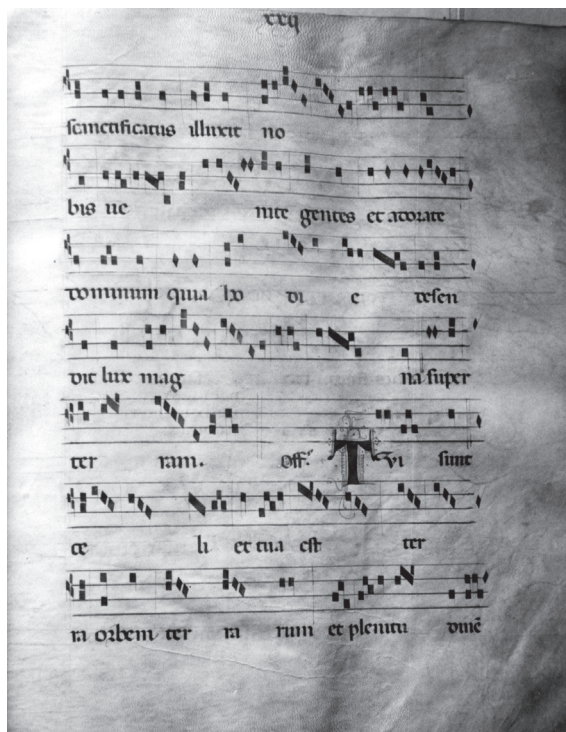 xxij
sanctificatus illuxit no
bis ue nite gentes et adorate
dominum quia ho di e descen
dit lux mag na super
ter ram. Off. Tvi sunt
ce li et tua est ter
ra orbem ter ra rum et plenitu dinē